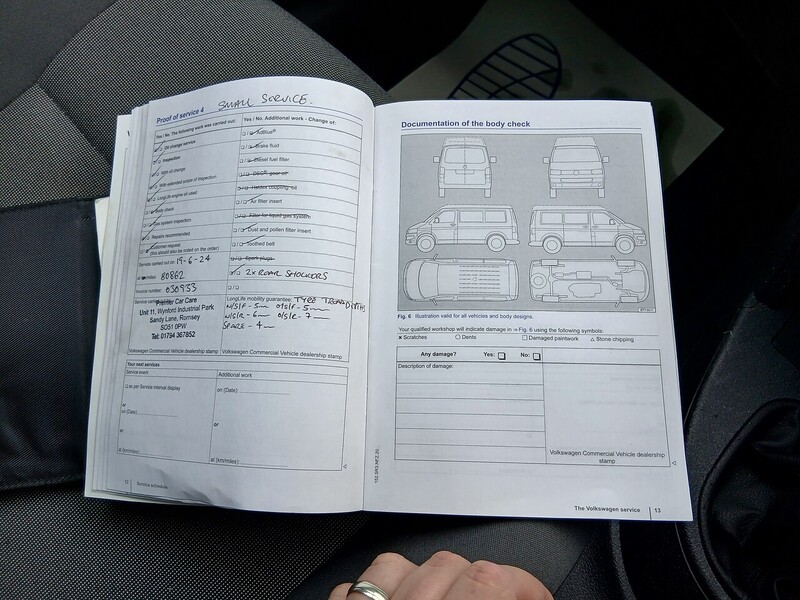 Proof of service 4 SMALL SERVICE.
Yes / No. The following work was carried out:
Oil change service
Inspection
With oil change
With extended scope of inspection
LongLife engine oil used
Body check
Gas system inspection
Repairs recommended
Customer request
(this should also be noted on the order)
Service carried out on 19-6-24
at 80862
Invoice number: 030933
Premier Car Care
Unit 11, Wynford Industrial Park
Sandy Lane, Romsey
SO51 0PW
Tel: 01794 367852
Volkswagen Commercial Vehicle dealership stamp
Yes / No. Additional work - Change of:
AdBlue®
Brake fluid
Diesel fuel filter
DSG® gear oil
Haldex coupling oil
Air filter insert
Filter for liquid gas system
Dust and pollen filter insert
Toothed belt
Spark plugs
2x REAR SHOCKERS
LongLife mobility guarantee: TYRE TREAD DEPTHS
N/S/F - 5 O/S/F - 5
N/S/R - 6 O/S/R - 7
SPARE - 4
Volkswagen Commercial Vehicle dealership stamp
Your next services
Service work
as per Service interval display
or
on (Date)
or
at (km/miles)
Additional work
on (Date)
or
at (km/miles)
12 Service schedule
Documentation of the body check
Fig. 6 Illustration valid for all vehicles and body designs.
Your qualified workshop will indicate damage in ⇒ Fig. 6 using the following symbols:
× Scratches ○ Dents □ Damaged paintwork △ Stone chipping
Any damage? Yes: No:
Description of damage:
Volkswagen Commercial Vehicle dealership
stamp
The Volkswagen service 13